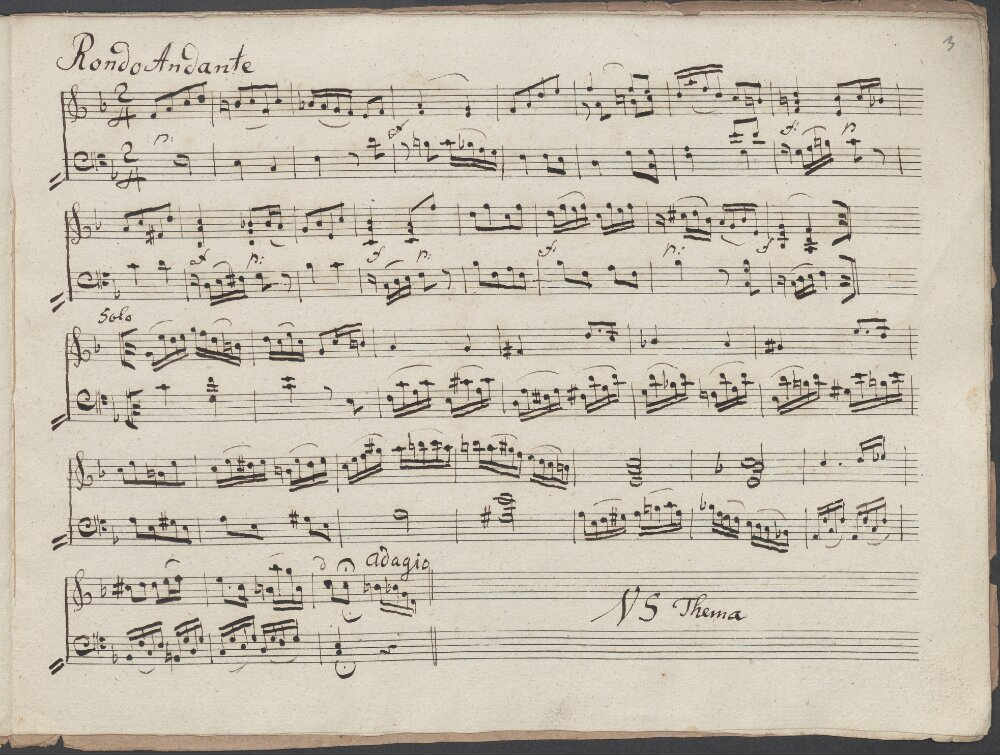 Rondo Andante
3
p:
f
f: p
f: p: f p: f: p: f
Solo
Adagio
VS Thema